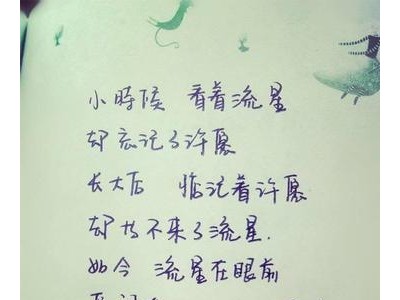 小時候 看着流星
却忘记了许愿
长大后 惦记着许愿
却找不来了流星.
如今 流星在眼前